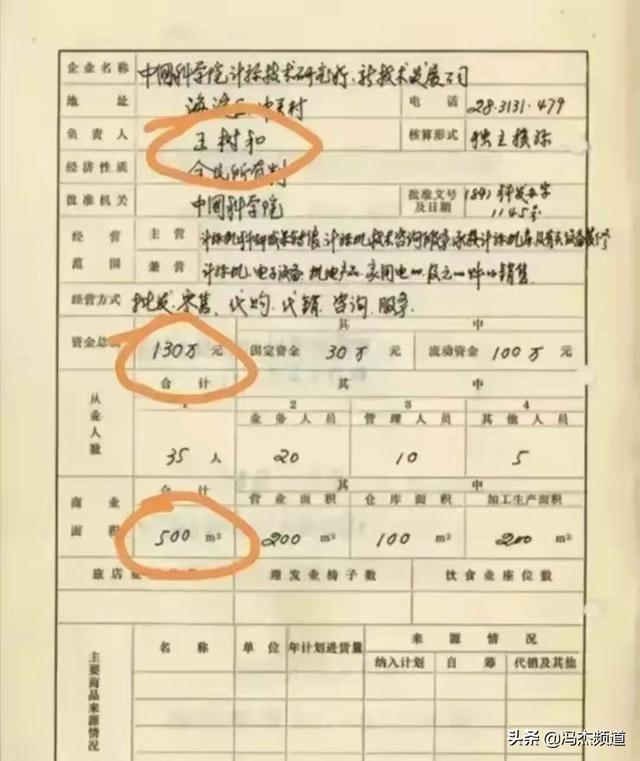 企业名称 中国科学院计算技术研究所新技术发展公司
地址 海淀区中关村 电话 28.3131-479
负责人 王树和 核算形式 独立核算
经济性质 全民所有制
批准机关 中国科学院 批准文号及日期 科发 字 1145号
经营范围 主营 计算机科研成果 计算机技术咨询服务 承接计算机房
兼营 计算机、电子设备 机电产品 家用电 销售
经营方式 批发 零售 代购 代销 咨询 服务
其中
资金总额 130万元 固定资金 30万元 流动资金 100万元
从业人数 合计 其中
1 2 业务人员 3 管理人员 4 其他人员
35人 20 10 5
商业面积 合计 其中
营业面积 仓库面积 加工生产面积
500 m² 200 m² 100 m² 200 m²
旅店 理发业椅子数 饮食业座位数
主要商品来源情况 名称 单位 年计划进货量 来源情况
纳入计划 自筹 代销及其他
头条 @冯杰频道